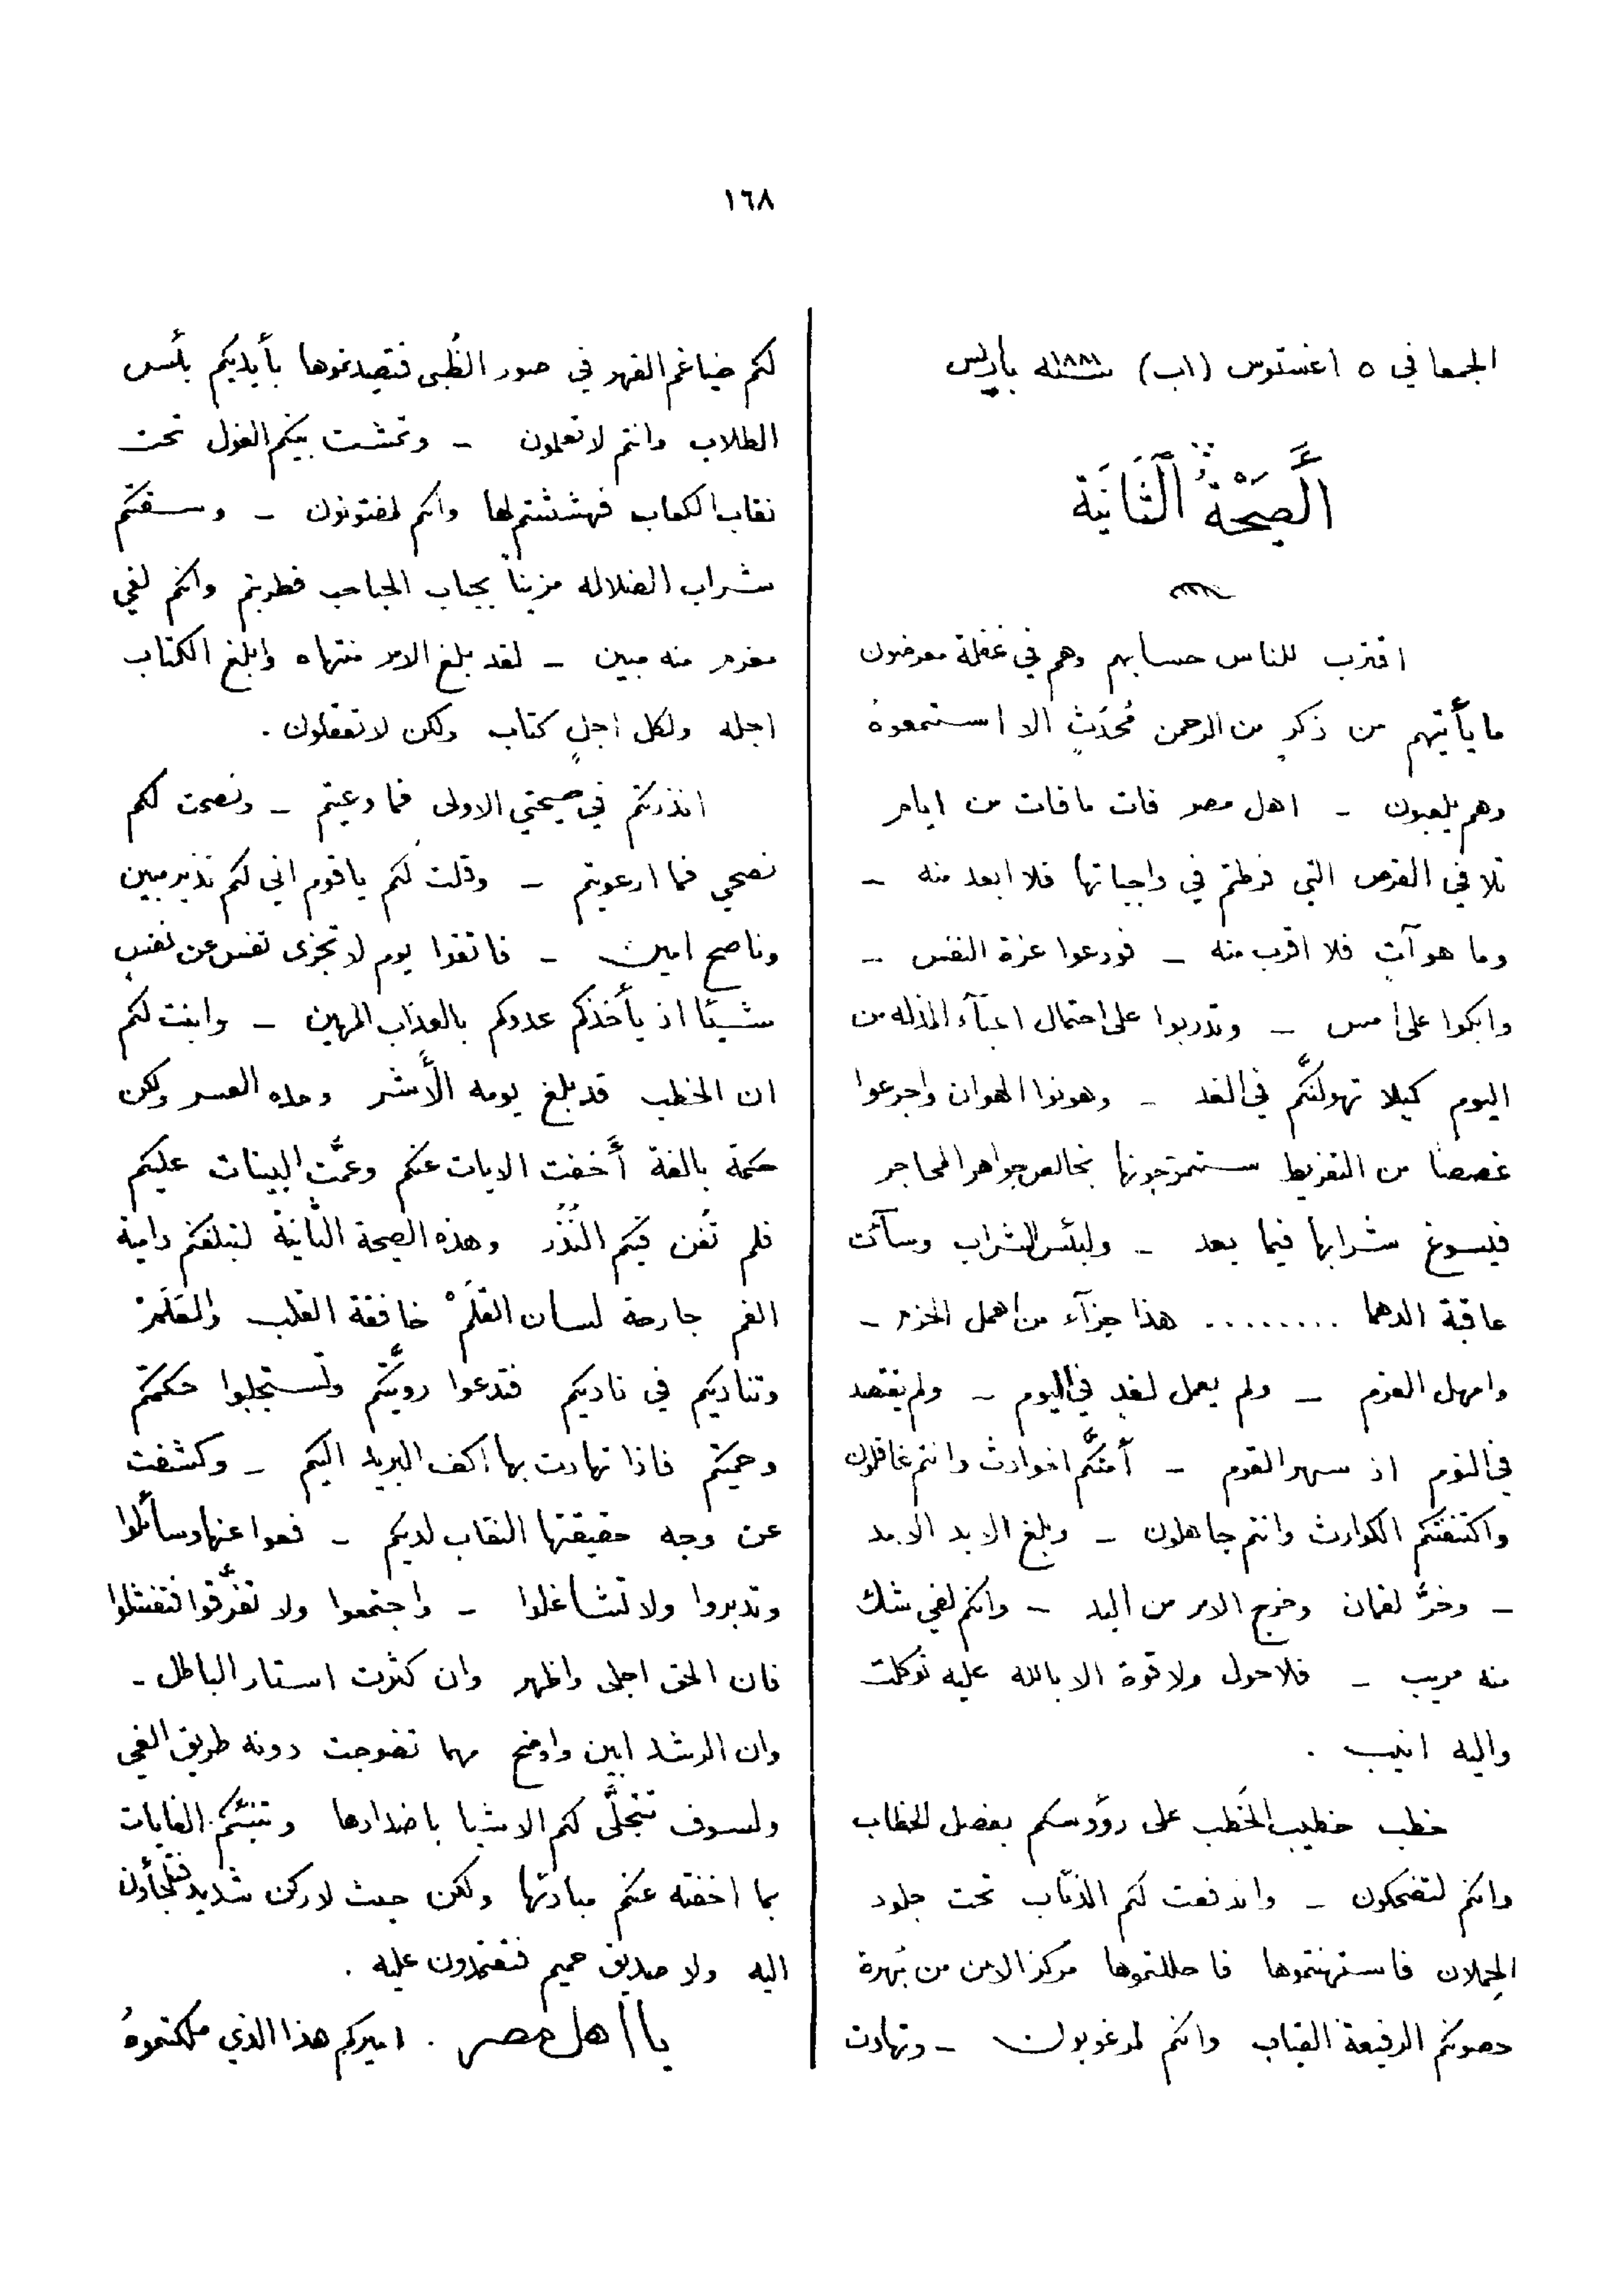 ١٦٨
الجمعا في ٥ اغستوس (اب) سنة ١٨٨١ باريس
اَلصَّيْحَةُ اَلثَّانِيَة
اقترب للناس حسابهم وهم في غفلة معرضون
ما يأتيهم من ذكرٍ من الرحمن مُحدَثٍ الا استمعوهُ
وهم يلعبون – اهل مصر فات ما فات من ايام
تلافي الفرص التي فرطتم في واجباتها فلا ابعد منه –
وما هو آتٍ فلا اقرب منه – فودعوا عزة النفس –
وابكوا على امس – وتدربوا على احتمال اعبآء المذله من
اليوم كيلا تهولنَّكم في الغد – وهونوا الهوان واجرعوا
غصصًا من التفريط ستمزجونها بخالص جواهر المحاجر
فيسوغ شرابها فيما بعد – ولبئس الشراب وسآئت
عاقبة الدهما ........ هذا جزآء من اهمل الحزم –
وامهل العزم – ولم يعمل لغدٍ في اليوم – ولم يقتصد
في النوم اذ سهر القوم – أمتكُّم الحوادث وانتم غافلون
واكتنفتكم الكوارث وانتم جاهلون – وبلغ الابد الامد
– وخرَّ لقمان وخرج الامر من اليد – وانكم لفي شك
منه مريب – فلا حول ولا قوة الا بالله عليه توكلت
واليه انيب .
خطب خطيب الخَطب على روؤسكم بفصل الخطاب
وانكم لتضحكون – واندفعت لكم الذئاب تحت جلود
الحِملان فاستهنتموها فاحللتموها مركز الامن من بُهرة
حصونكم الرفيعة القباب وانكم لمرغوبون – وتهادت
لكم ضياغم القهر في صور الظُبى فتصيدتموها بأيديكم بئس
الطلاب وانتم لا تعلمون – وتمشت بينكم الغول تحت
نقاب الكعاب فهششتم لها وانكم لمفتونون – وسقتكم
شراب الضلاله مزينًا بحباب الحباحب فطربتم وانكم لفي
مغرم منه مبين – لقد بلغ الامر منتهاه وابلغ الكتاب
اجله ولكل اجلٍ كتاب ولكن لا تعقلون .
انذرتكم في صيحتي الاولى فما وعيتم – ونصحت لكم
نصحي فما ارعويتم – وقلت لكم يا قوم اني لكم نذير مبين
وناصح امين – فاتقوا يوم لا تجزى نفس عن نفسٍ
شيئًا اذ يأخذكم عدوكم بالعذاب المهين – وابنت لكم
ان الخطب قد بلغ يومه الأَشر وحده العسر ولكن
حكمة بالغة أَخفت الايات عنكم وعمَّت البينات عليكم
فلم تُغن فيكم النُذُر وهذه الصيحة الثانية لتبلغكم دامية
الفم جارحة لسان القلَمْ خافقة القلب والعَلَمْ
وتناديكم في ناديكم فتدعوا رويَّتكم وتستجلبوا حكمتكم
وحميتكم فاذا تهادت بها اكف البريد اليكم – وكشفت
عن وجه حقيقتها النقاب لديكم – فعوا عنها وسائلوا
وتدبروا ولا تشاغلوا – واجتمعوا ولا تفرَّقوا فتفشلوا
فان الحق اجلى واظهر وان كثرت استار الباطل –
وان الرشد ابين واوضح مهما تضوجت دونه طريق الغي
ولسوف تتجلَّى لكم الاشيا باضدادها وتنبئكم الغايات
بما اخفته عنكم مبادئها ولكن حيث لا ركن شديد فتلجأون
اليه ولا صديق حميم فتعتمدون عليه .
يا اهل مصر . اميركم هذا الذي ملكتموهُ